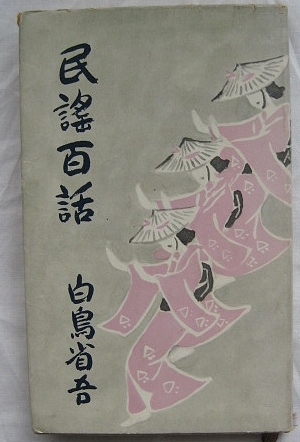 民謠百話
白鳥省吾